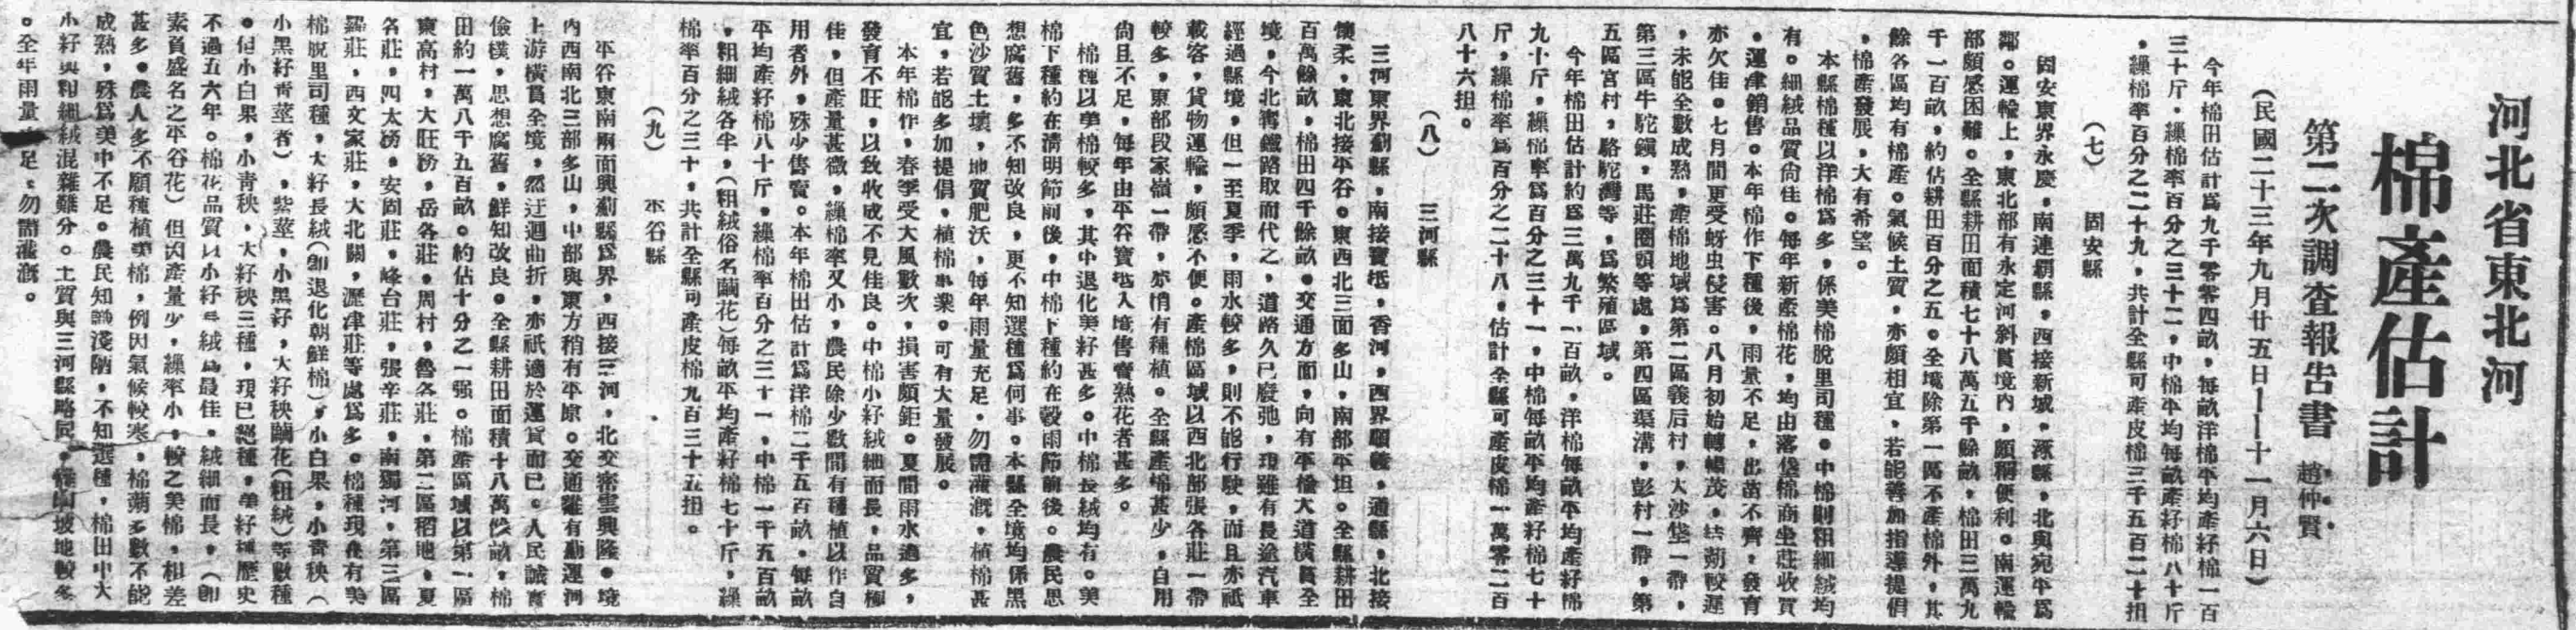 河北省東北河
棉產估計
第二次調查報告書 趙仲賢
(民國二十三年九月廿五日——十一月六日)
今年棉田估計爲九千零零四畝，每畝洋棉平均產籽棉一百
三十斤。繰棉率百分之三十二，中棉平均每畝產籽棉八十斤
，繰棉率百分之二十九，共計全縣可產皮棉三千五百二十担
(七) 固安縣
固安東界永慶，南連霸縣，西接新城，涿縣，北與宛平爲
鄰。運輸上，東北部有永定河斜貫境內，頗稱便利。南運輸
部頗感困難。全縣耕田面積七十八萬五千餘畝，棉田三萬九
千一百畝，約佔耕田百分之五。全境除第一區不產棉外，其
餘各區均有棉產。氣候土質，亦頗相宜，若能善加指導提倡
，棉產發展，大有希望。
本縣棉種以洋棉爲多，係美棉脫里司種。中棉則粗細絨均
有。細絨品質尙佳。每年新產棉花，均由落垡棉商坐莊收買
，運津銷售。本年棉作下種後，雨量不足，出苗不齊，發育
亦欠佳。七月間更受蚜虫侵害。八月初始轉暢茂，結蒴較遲
，未能全數成熟，產棉地域爲第二區義后村，大沙垡一帶，
第三區牛駝鎭，馬莊圈頭等處，第四區渠溝，彭村一帶，第
五區宮村，駱駝灣等，爲繁殖區域。
今年棉田估計約爲三萬九千一百畝，洋棉每畝平均產籽棉
九十斤，繰棉率爲百分之三十一，中棉每畝平均產籽棉七十
斤，繰棉率爲百分之二十八，估計全縣可產皮棉一萬零二百
八十六担。
(八) 三河縣
三河東界薊縣，南接寶坻，香河，西界順義，通縣，北接
懷柔，東北接平谷。東西北三面多山，南部平坦。全縣耕田
百萬餘畝，棉田四千餘畝。交通方面，向有平楡大道橫貫全
境，今北寗鐵路取而代之，道路久已廢弛，現雖有長途汽車
經過縣境，但一至夏季，雨水較多，則不能行駛，而且亦祇
載客，貨物運輸，頗感不便。產棉區域以西北部張各莊一帶
較多，東部段家嶺一帶，亦稍有種植。全縣產棉甚少，自用
尙且不足，每年由平谷寶坻入境售賣熟花者甚多。
棉種以美棉較多，其中退化美籽甚多。中棉長絨均有。美
棉下種約在淸明節前後，中棉下種約在穀雨節前後。農民思
想腐舊，多不知改良，更不知選種爲何事。本縣全境均係黑
色沙質土壤，地質肥沃，每年雨量充足，勿需灌漑，植棉甚
宜，若能多加提倡，植棉事業。可有大量發展。
本年棉作，春季受大風數次，損害頗鉅。夏間雨水過多，
發育不旺，以致收成不見佳良。中棉小籽絨細而長，品質極
佳，但產量甚微，繰棉率又小，農民除少數間有種植以作自
用者外，殊少售賣。本年棉田估計爲洋棉二千五百畝，每畝
平均產籽棉八十斤，繰棉率百分之三十一，中棉一千五百畝
，粗細絨各半，(粗絨俗名繭花)每畝平均產籽棉七十斤，繰
棉率百分之三十，共計全縣可產皮棉九百三十五担。
(九) 平谷縣
平谷東南兩面與薊縣爲界，西接三河，北交密雲興隆。境
內西南北三部多山，中部與東方稍有平原。交通雖有薊運河
上游橫貫全境，然迂迴曲折，亦祇適於運貨而已。人民誠實
儉樸，思想腐舊，鮮知改良。全縣耕田面積十八萬餘畝，棉
田約一萬八千五百畝。約佔十分之一强。棉產區域以第一區
東高村，大旺務，岳各莊，周村，魯各莊，第二區稻地，夏
各莊，四太務，安固莊，峰台莊，張辛莊，南獨河，第三區
羅莊，西文家莊，大北關，瀝津莊等處爲多。棉種現在有美
棉脫里司種，大籽長絨(卽退化朝鮮棉)，小白果，小靑秧(
小黑籽靑莖者)，紫莖，小黑籽，大籽秧繭花(粗絨)等數種
。但小白果，小靑秧，大籽秧三種，現已絕種，美籽種歷史
不過五六年。棉花品質以小籽長絨爲最佳，絨細而長，(卽
素負盛名之平谷花)但因產量少，繰率小，較之美棉，相差
甚多。農人多不願種植美棉，例因氣候較寒，棉蒴多數不能
成熟，殊爲美中不足。農民知識淺陋，不知選種，棉田中大
小籽與粗細絨混雜難分。土質與三河縣略同，惟山坡地較多
。全年雨量 足，勿需灌漑。